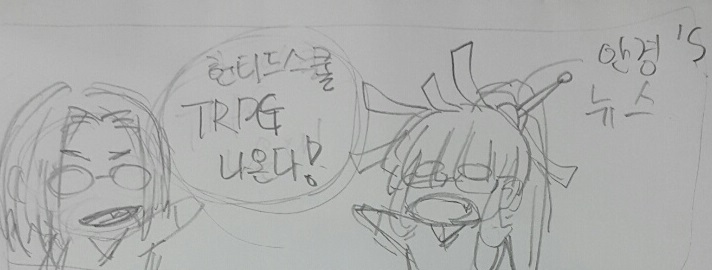 헌티드스쿨
TRPG
나온다!
안경's
뉴스